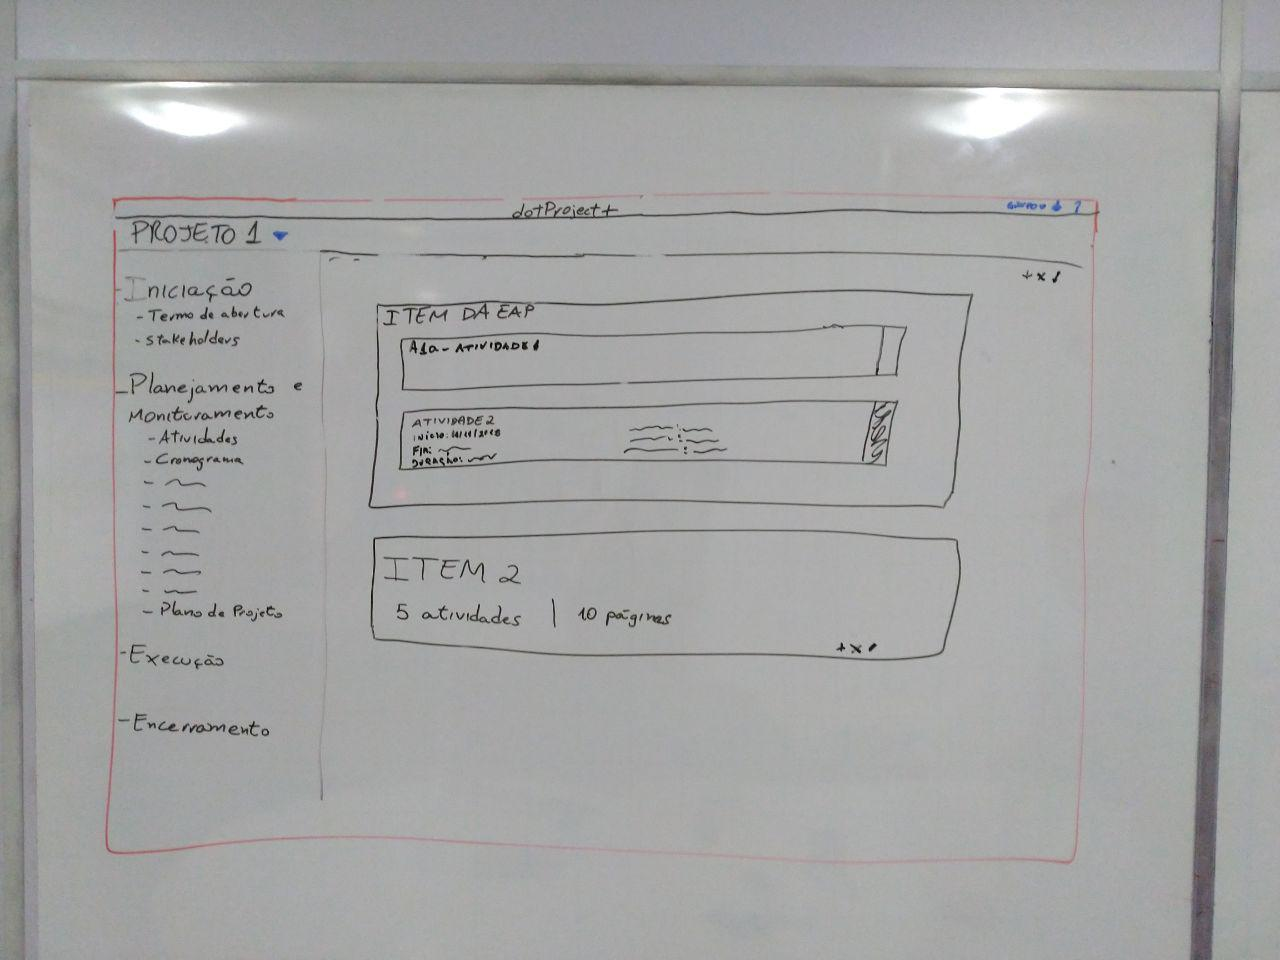 dotProject+
PROJETO 1
- Iniciação
- Termo de abertura
- Stakeholders
- Planejamento e
Monitoramento
- Atividades
- Cronograma
- Plano de Projeto
- Execução
- Encerramento
+ x
ITEM DA EAP
A1a - ATIVIDADE 1
ATIVIDADE 2
INÍCIO:
FIM:
DURAÇÃO:
ITEM 2
5 atividades | 10 páginas
+ x